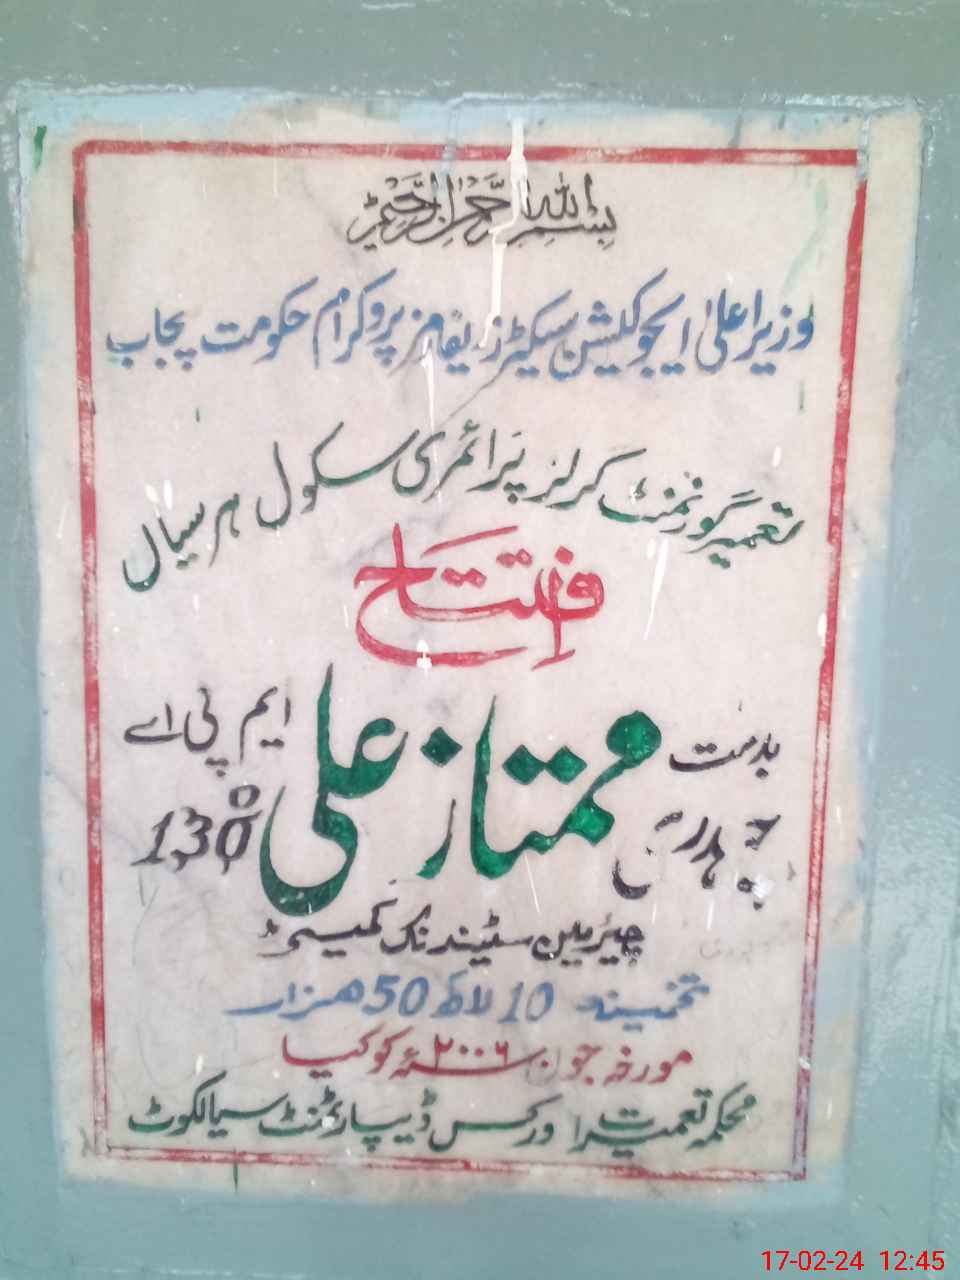 بسم اللہ الرحمن الرحیم
وزیر اعلیٰ ایجوکیشن سیکٹر ریفامز پروگرام حکومت پنجاب
تعمیر گورنمنٹ گرلز پرائمری سکول ہرسیال
افتتاح
بدست چوہدری ممتاز علی ایم پی اے
130
چیئرمین سٹینڈنگ کمیٹی
تخمینہ 10 لاکھ 50 ہزار
مورخہ جون ۲۰۰۶ء کو کیا
محکمہ تعمیرات ورکس ڈیپارٹمنٹ سیالکوٹ
17-02-24 12:45